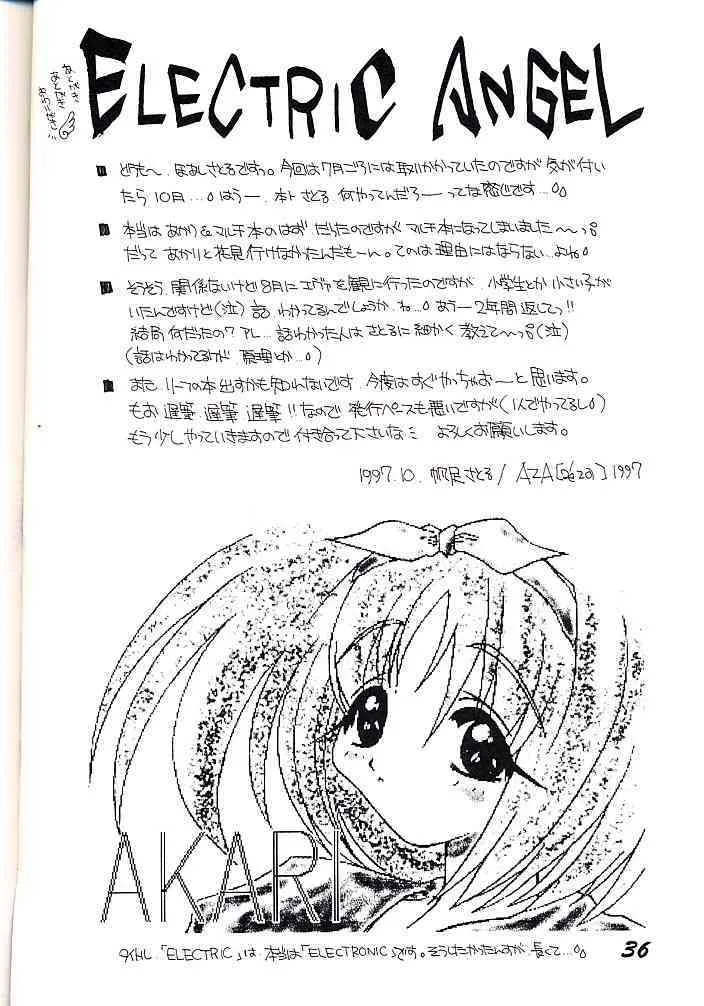 ELECTRIC ANGEL
どうも〜、ほあしさとるですっ。今回は7月ごろには取りかかっていたのですが気が付い
たら10月...。はうー、本トさとる、何やってんだろーってな感じです...。
本当はあかり&マルチ本のはずだったのですがマルチ本になってしまいました〜っ。
だってあかりと花見行けなかったんだもーん。てのは理由にはならない...よね。
そうそう、関係ないけど8月にエヴァを観に行ったのですが、小学生とか小さい子が
いたんですけど(泣)話わかってるんでしょうか、ね...。あうー2年間返してっ!!
結局何だったの?アレ...話わかった人はさとるに細かく教えて〜っ。(泣)
(話はわかってるけど、原理とか...。)
リーフの本出すかも知れないです。今度はすぐやっちゃおーと思います。
もお遅筆、遅筆、遅筆!!なので発行ペースも悪いですが(1人でやってるし)
もう少しやっていきますので付き合って下さいな ミ よろしくお願いします。
1997.10. 帆足さとる/AZA 1997
AKARI
タイトル「ELECTRIC」は、本当は「ELECTRONIC」です。そうしたかったんすが、長くて...。
36